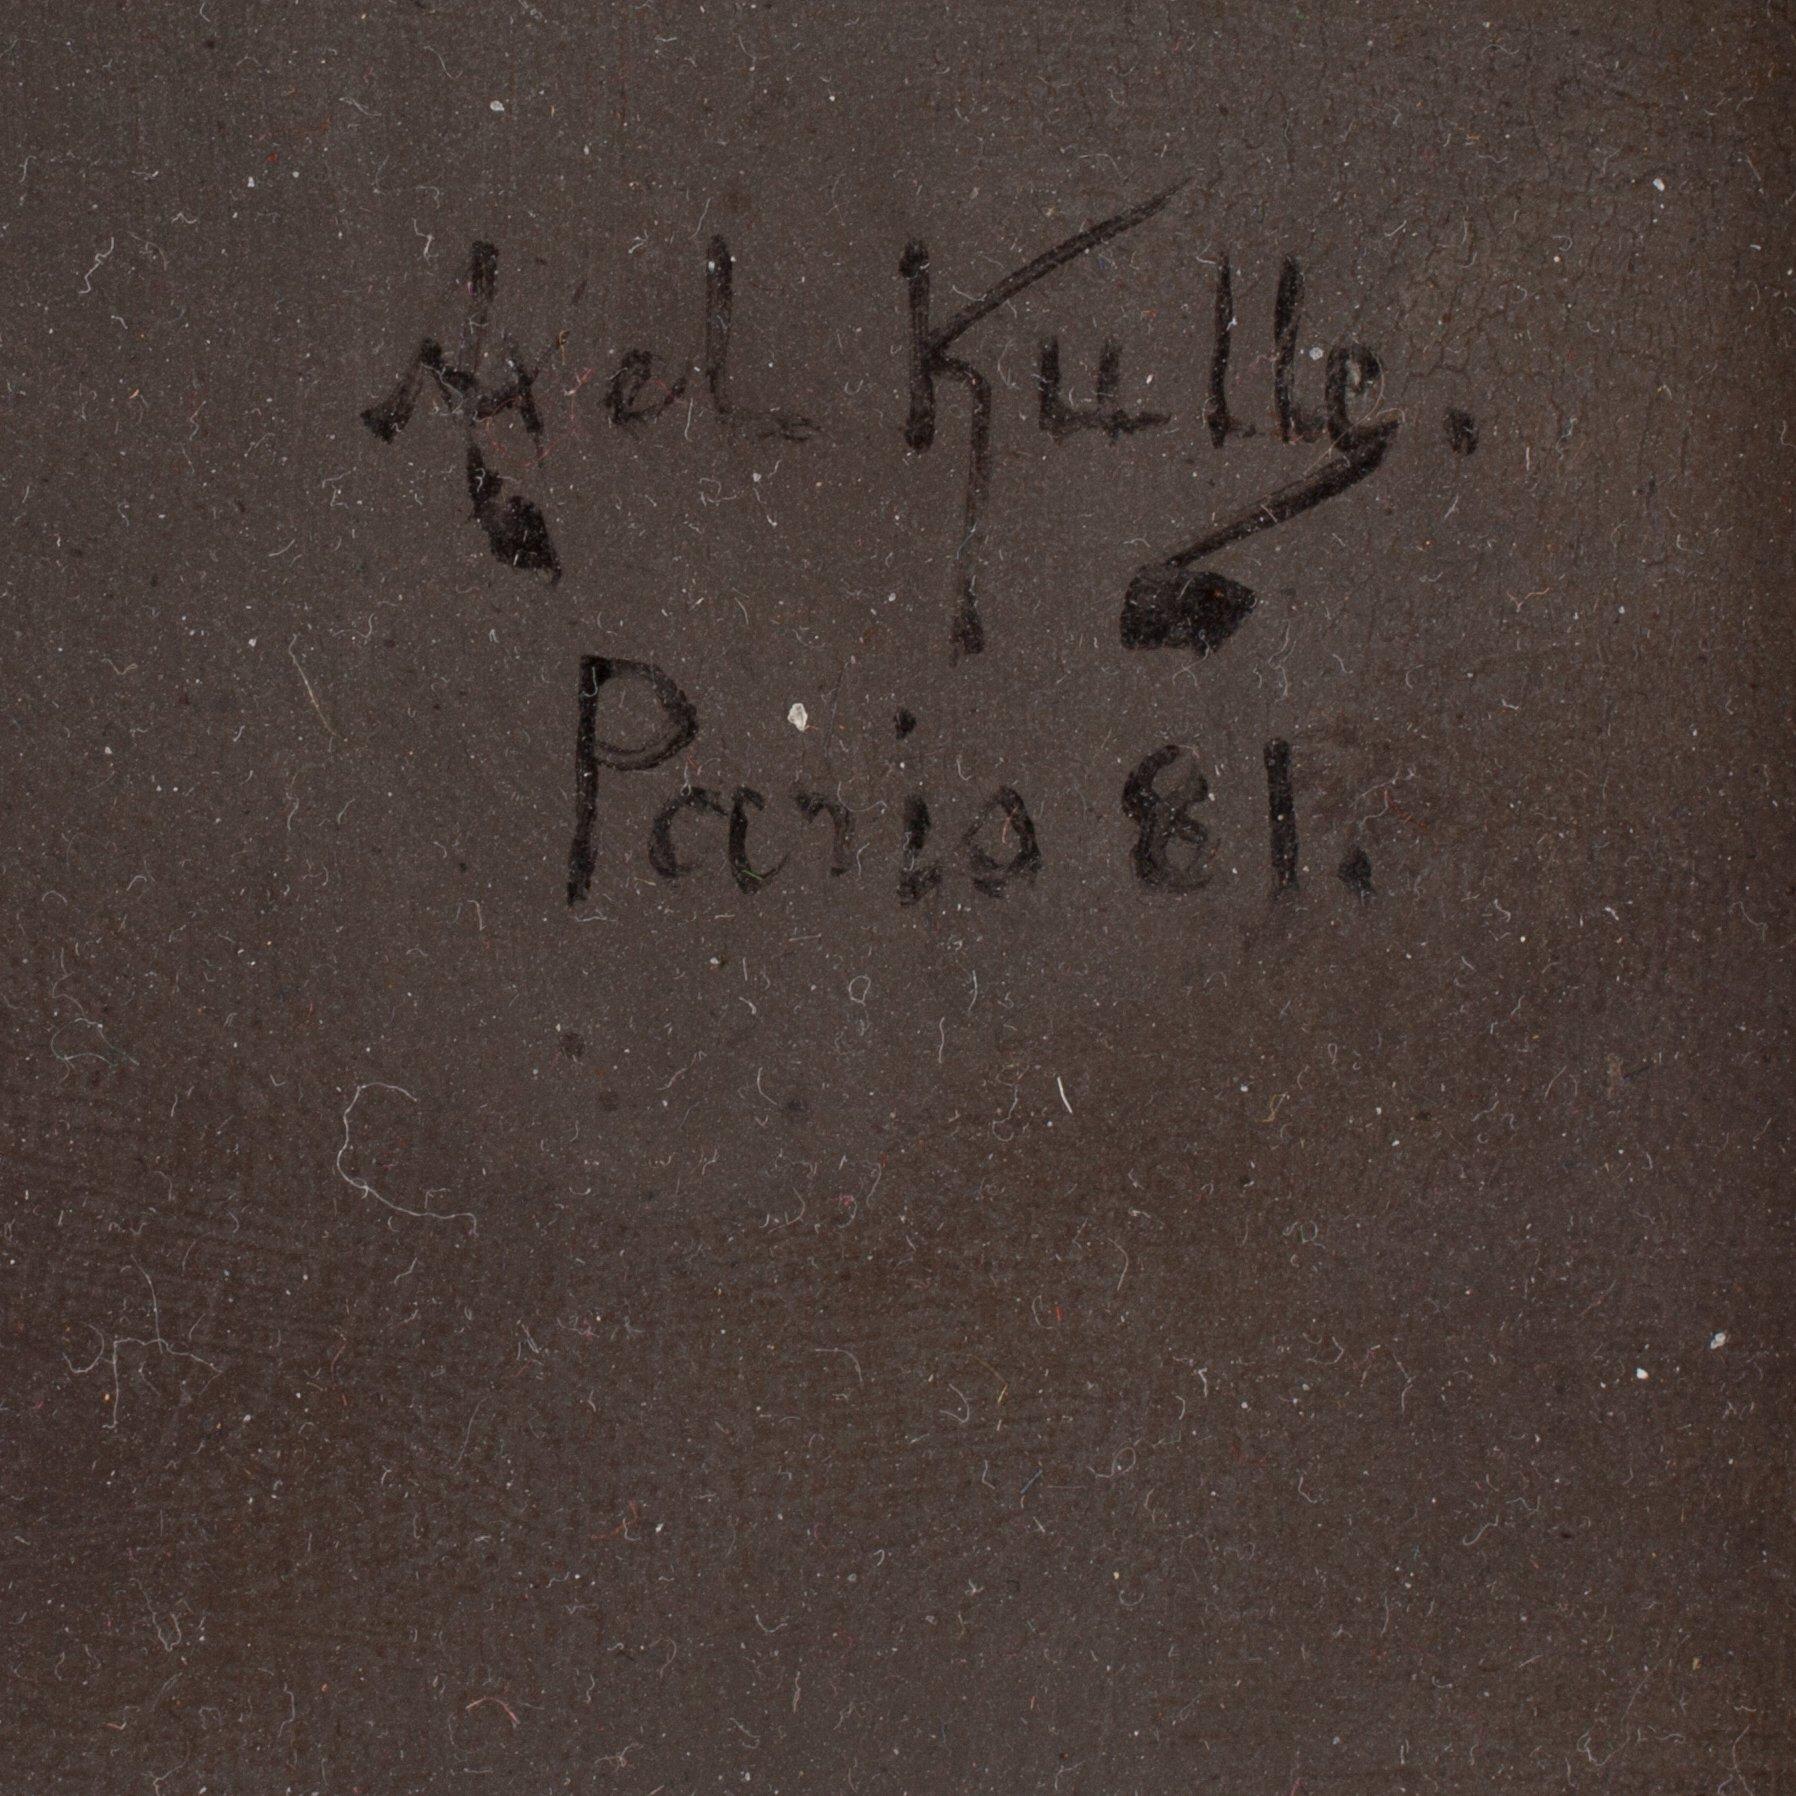 Axel Kulle.
Paris 81.